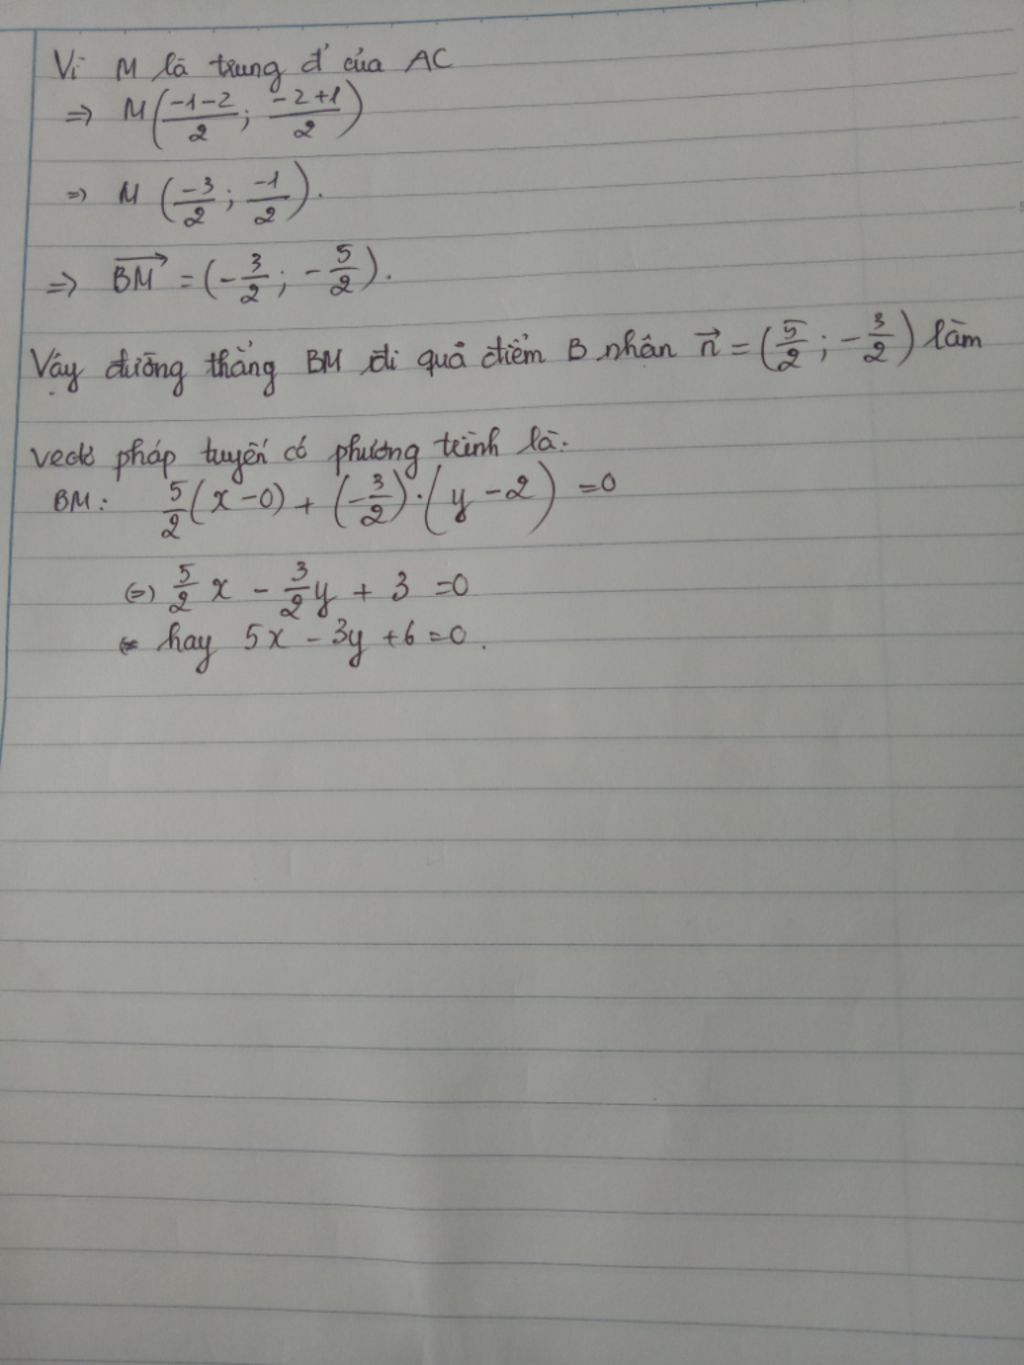 Vì M là trung đ' của AC
⇒ M(\frac{-1-2}{2}; \frac{-2+1}{2})
⇒ M (\frac{-3}{2}; \frac{-1}{2}).
⇒ \overrightarrow{BM} = (-\frac{3}{2}; -\frac{5}{2}).
Vậy đường thẳng BM đi quả điểm B nhân \vec{n} = (\frac{5}{2}; -\frac{3}{2}) làm
vectơ pháp tuyến có phương trình là:
BM: \frac{5}{2}(x-0) + (-\frac{3}{2}).(y-2) =0
(=) \frac{5}{2}x - \frac{3}{2}y + 3 =0
hay 5x - 3y +6 =0.